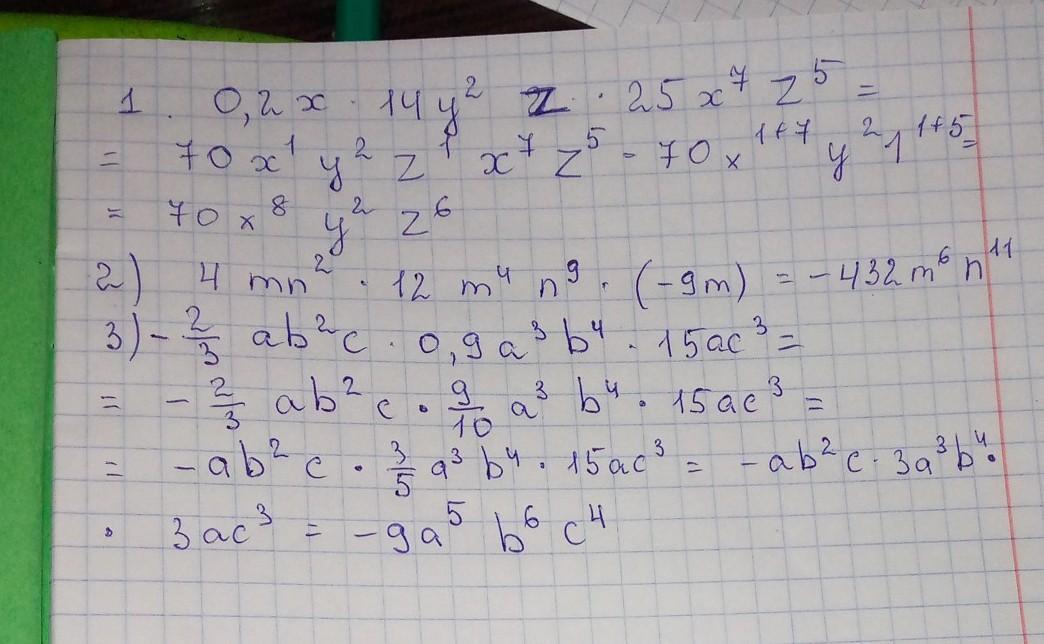 1. 0,2x · 14y² z · 25x⁷ z⁵ =
= 70x¹ y² z¹ x⁷ z⁵ - 70x¹⁺⁷ y² 1¹⁺⁵=
= 70x⁸ y² z⁶
2) 4 mn² · 12 m⁴ n⁹ · (-9m) = -432m⁶ n¹¹
3) - 2/3 ab²c · 0,9a³b⁴ · 15ac³ =
= - 2/3 ab² c · 9/10 a³ b⁴ · 15ac³ =
= -ab² c · 3/5 a³ b⁴ · 15ac³ = -ab²c · 3a³b⁴ ·
· 3ac³ = -9a⁵ b⁶ c⁴